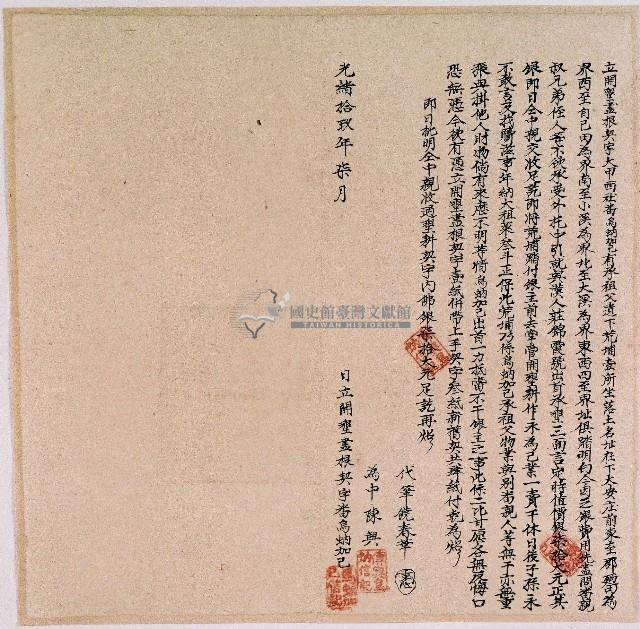 立開墾盡根契字大甲西社番烏蚋加己有承祖父遺下荒埔壹所坐落土名址在下大安庄前東至郡為
界西至自己田為界南至小溪為界北至大溪為界東西四至界址俱踏明白今因乏銀費用先盡問番親
叔兄弟侄人等不欲承受外托中引就與漢人莊錦霞號出首承墾三面言定時值價銀柒拾大元正其
銀即日仝中親交收足訖即將荒埔踏付銀主前去掌管開墾耕作永為己業一賣千休日後子孫永
不敢言及找贖滋事年納大租粟叁斗正保此荒埔乃係烏蚋加己承祖父物業與別番親人等無干亦無重
張典掛他人財物倘有來歷不明等情烏蚋加己出首一力抵當不干銀主之事此係二比甘愿各無反悔口
恐無憑今欲有憑立開墾盡根契字壹紙併帶上手契字叁紙新舊契共肆紙付執為炤
即日批明仝中親收過墾耕契字內佛銀柒拾大元足訖再炤
代筆饒春華
為中陳興
光緒拾玖年柒月 日立開墾盡根契字番烏蚋加己
國史館臺灣文獻館
TAIWAN HISTORICA